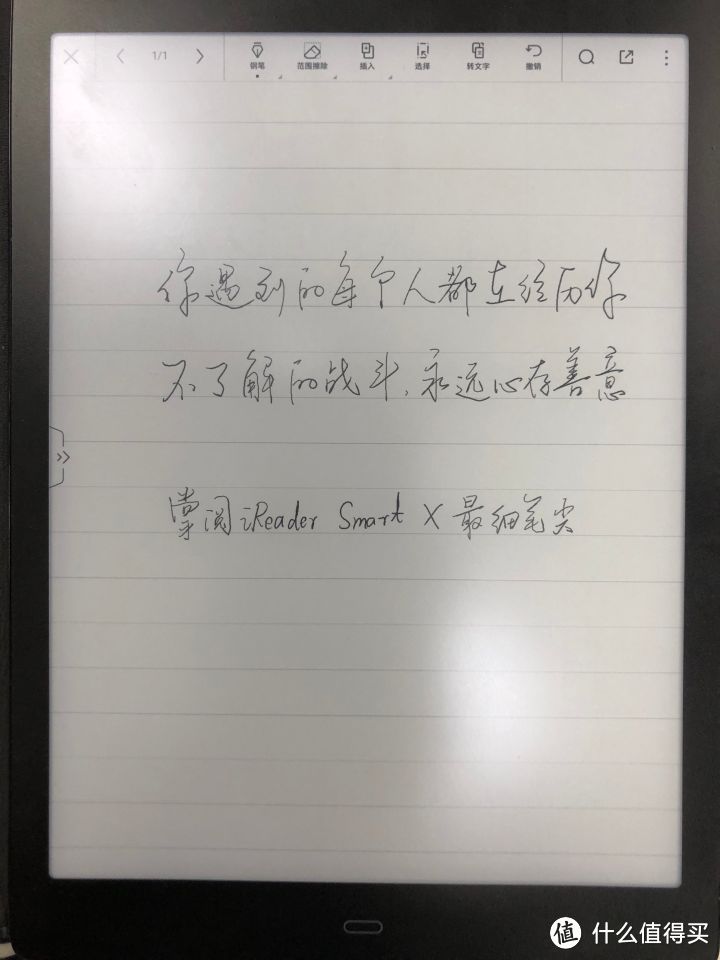 1/1
钢笔 范围擦除 插入 选择 转文字 撤销
你遇到的每个人都在经历你
不了解的战斗,永远心存善意
掌阅iReader Smart X 最细笔尖
值 什么值得买